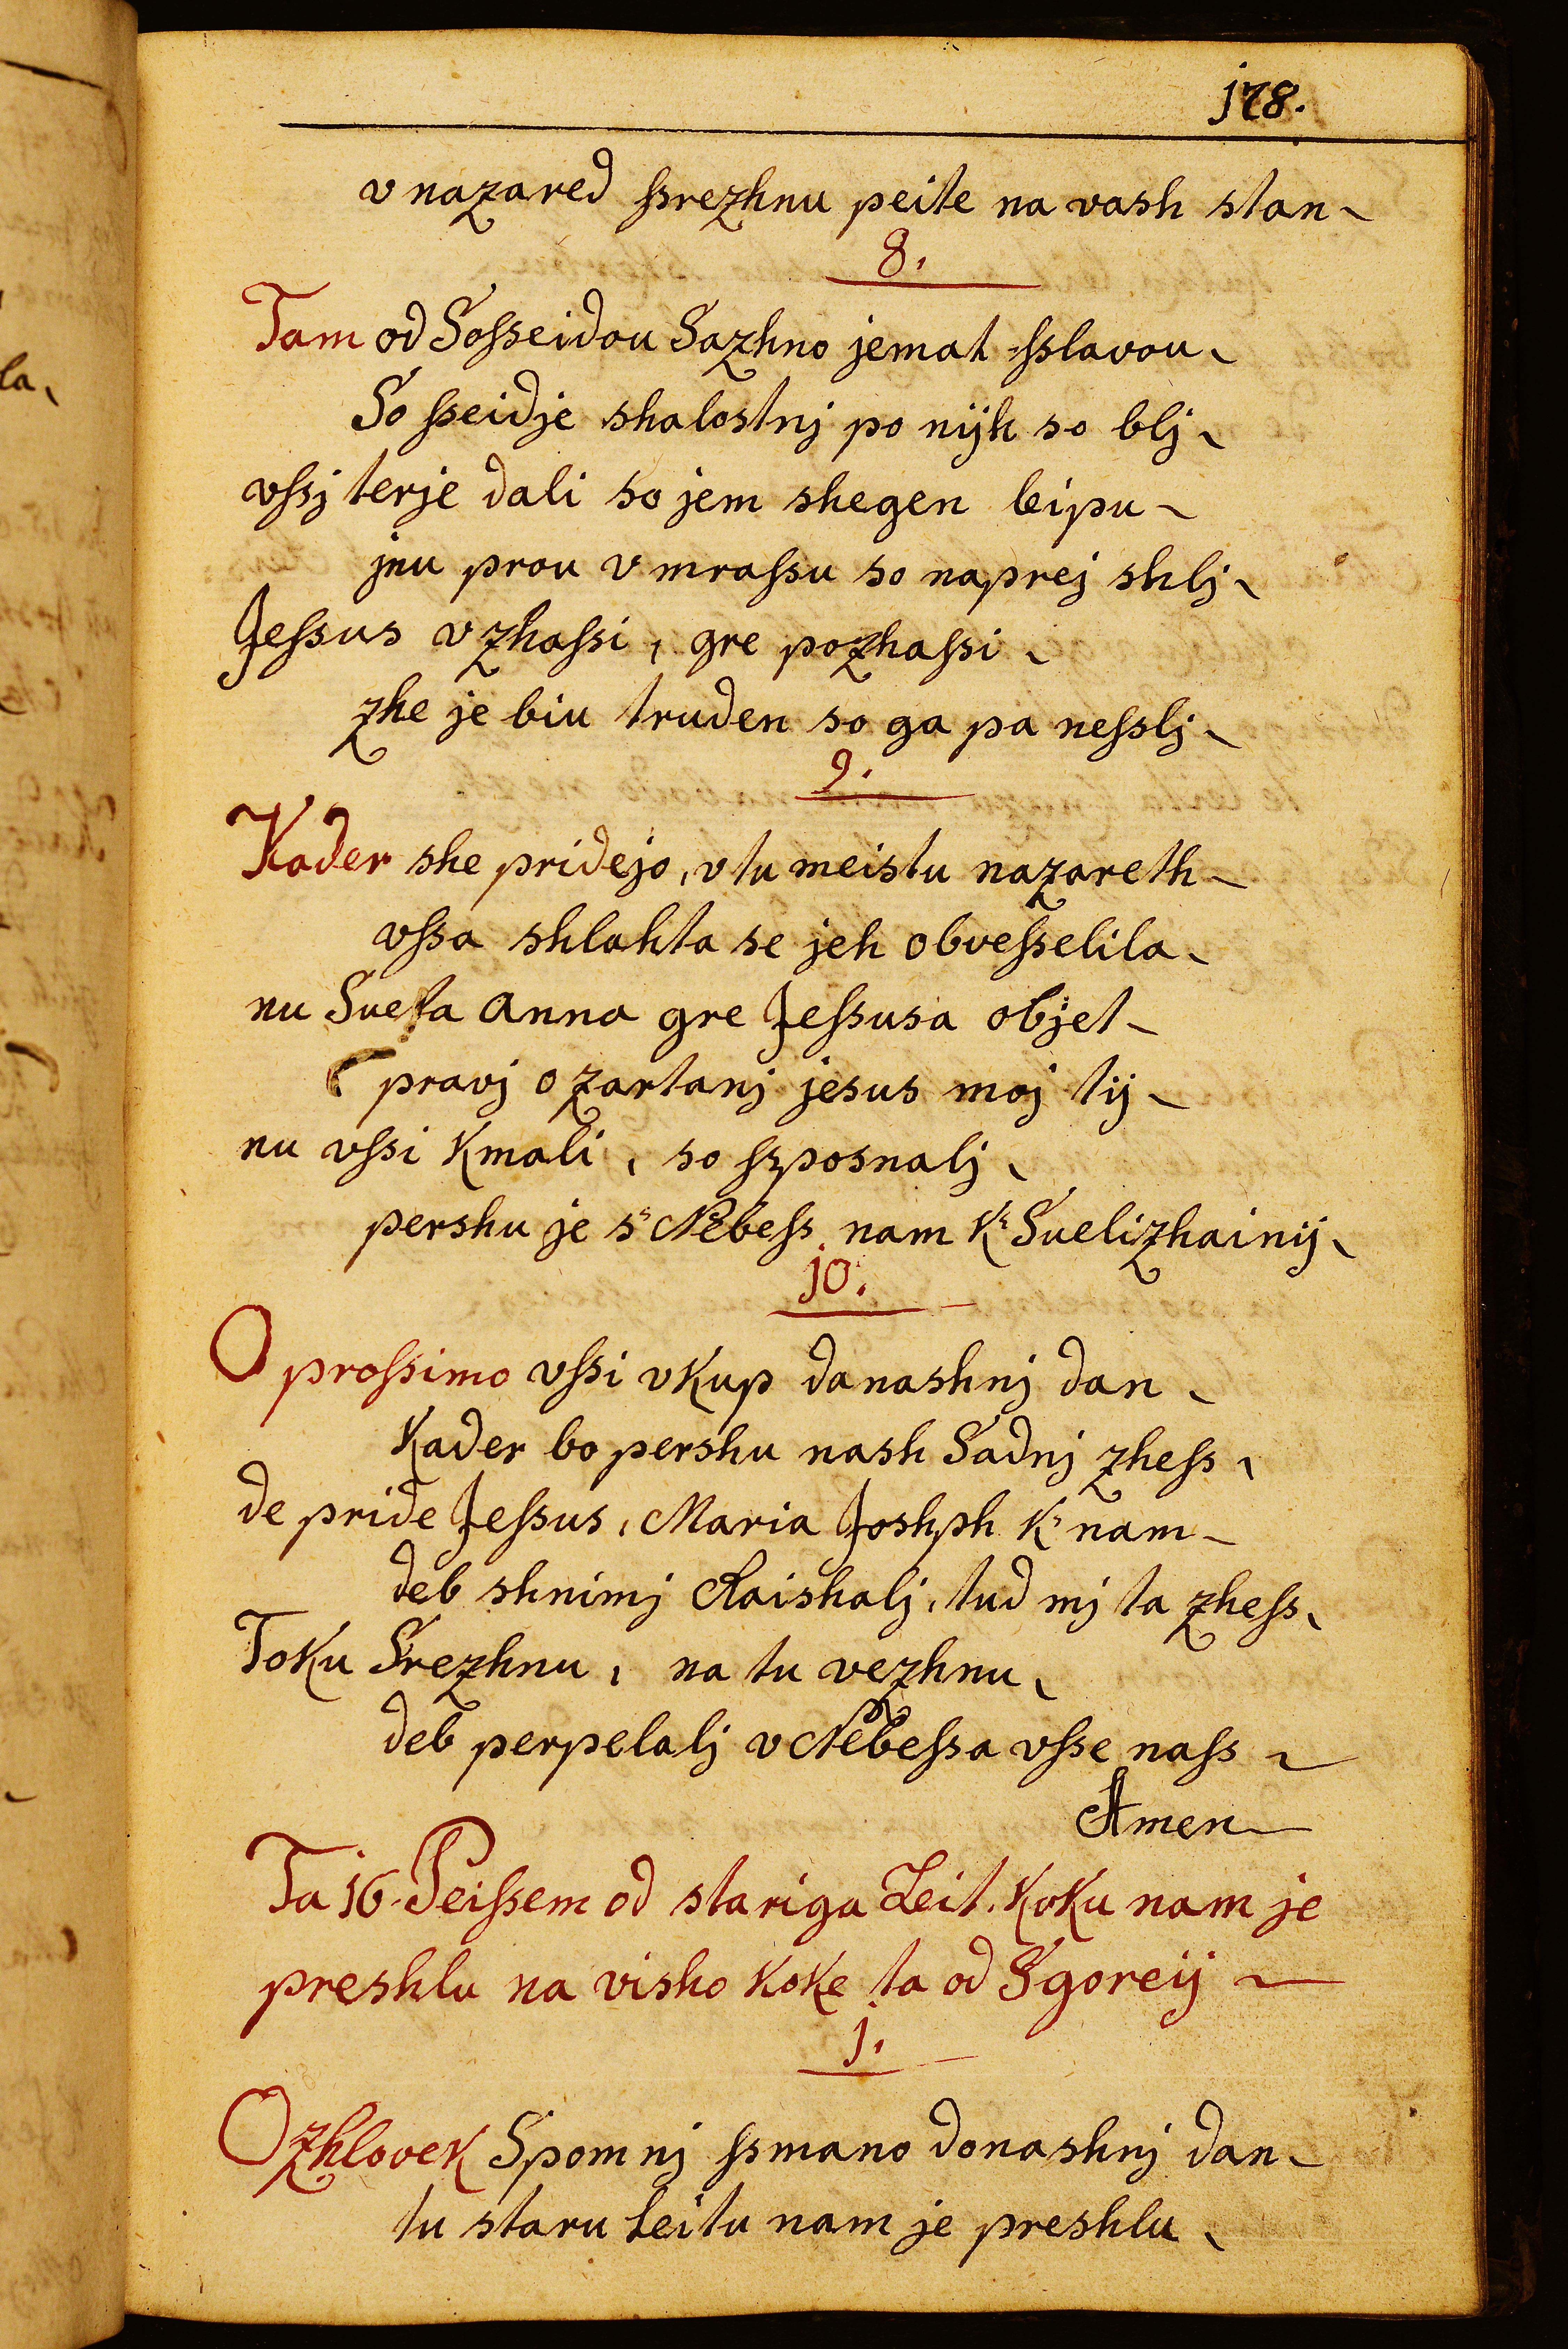 j78.
v nazared ſsrezhnu peite na vash stan
8.
Tam od Soſseidou Sazhno jemat ſslavou
So ſseidje shalostnj po nijh so blj
vſsj terje dali so jem shegen leipu
jnu prou v mraſsu so naprej shlj
Jeſsus v zhaſsi, gre pozhaſsi
zhe je biu truden so ga pa neſslj
9.
Kader she pridejo, v tu meistu nazareth
vſsa shlahta se jeh obveſselila
nu Sueta Anna gre Jeſsusa objet
pravj o zartanj jesus moj tij
nu vſsi kmali, so ſsposnalj
pershu je s Nebeſs nam k Suelizhainij
jo.
O proſsimo vſsi vkup danashnj dan
Kader bo pershu nash Sadnj zheſs
de pride Jeſsus, Maria Joshph k nam
deb shnimj Raishalj, tud mj ta zheſs
Toku Srezhnu, na tu vezhnu
deb perpelalj v Nebeſsa vſse naſs
Amen
Ta j6. Peiſsem od stariga Leit. koku nam je
preshlu na visho koke ta od Sgoreij
j.
O zhlovek Spomnj ſsmano donashnj dan
tu staru Leitu nam je preshlu
la